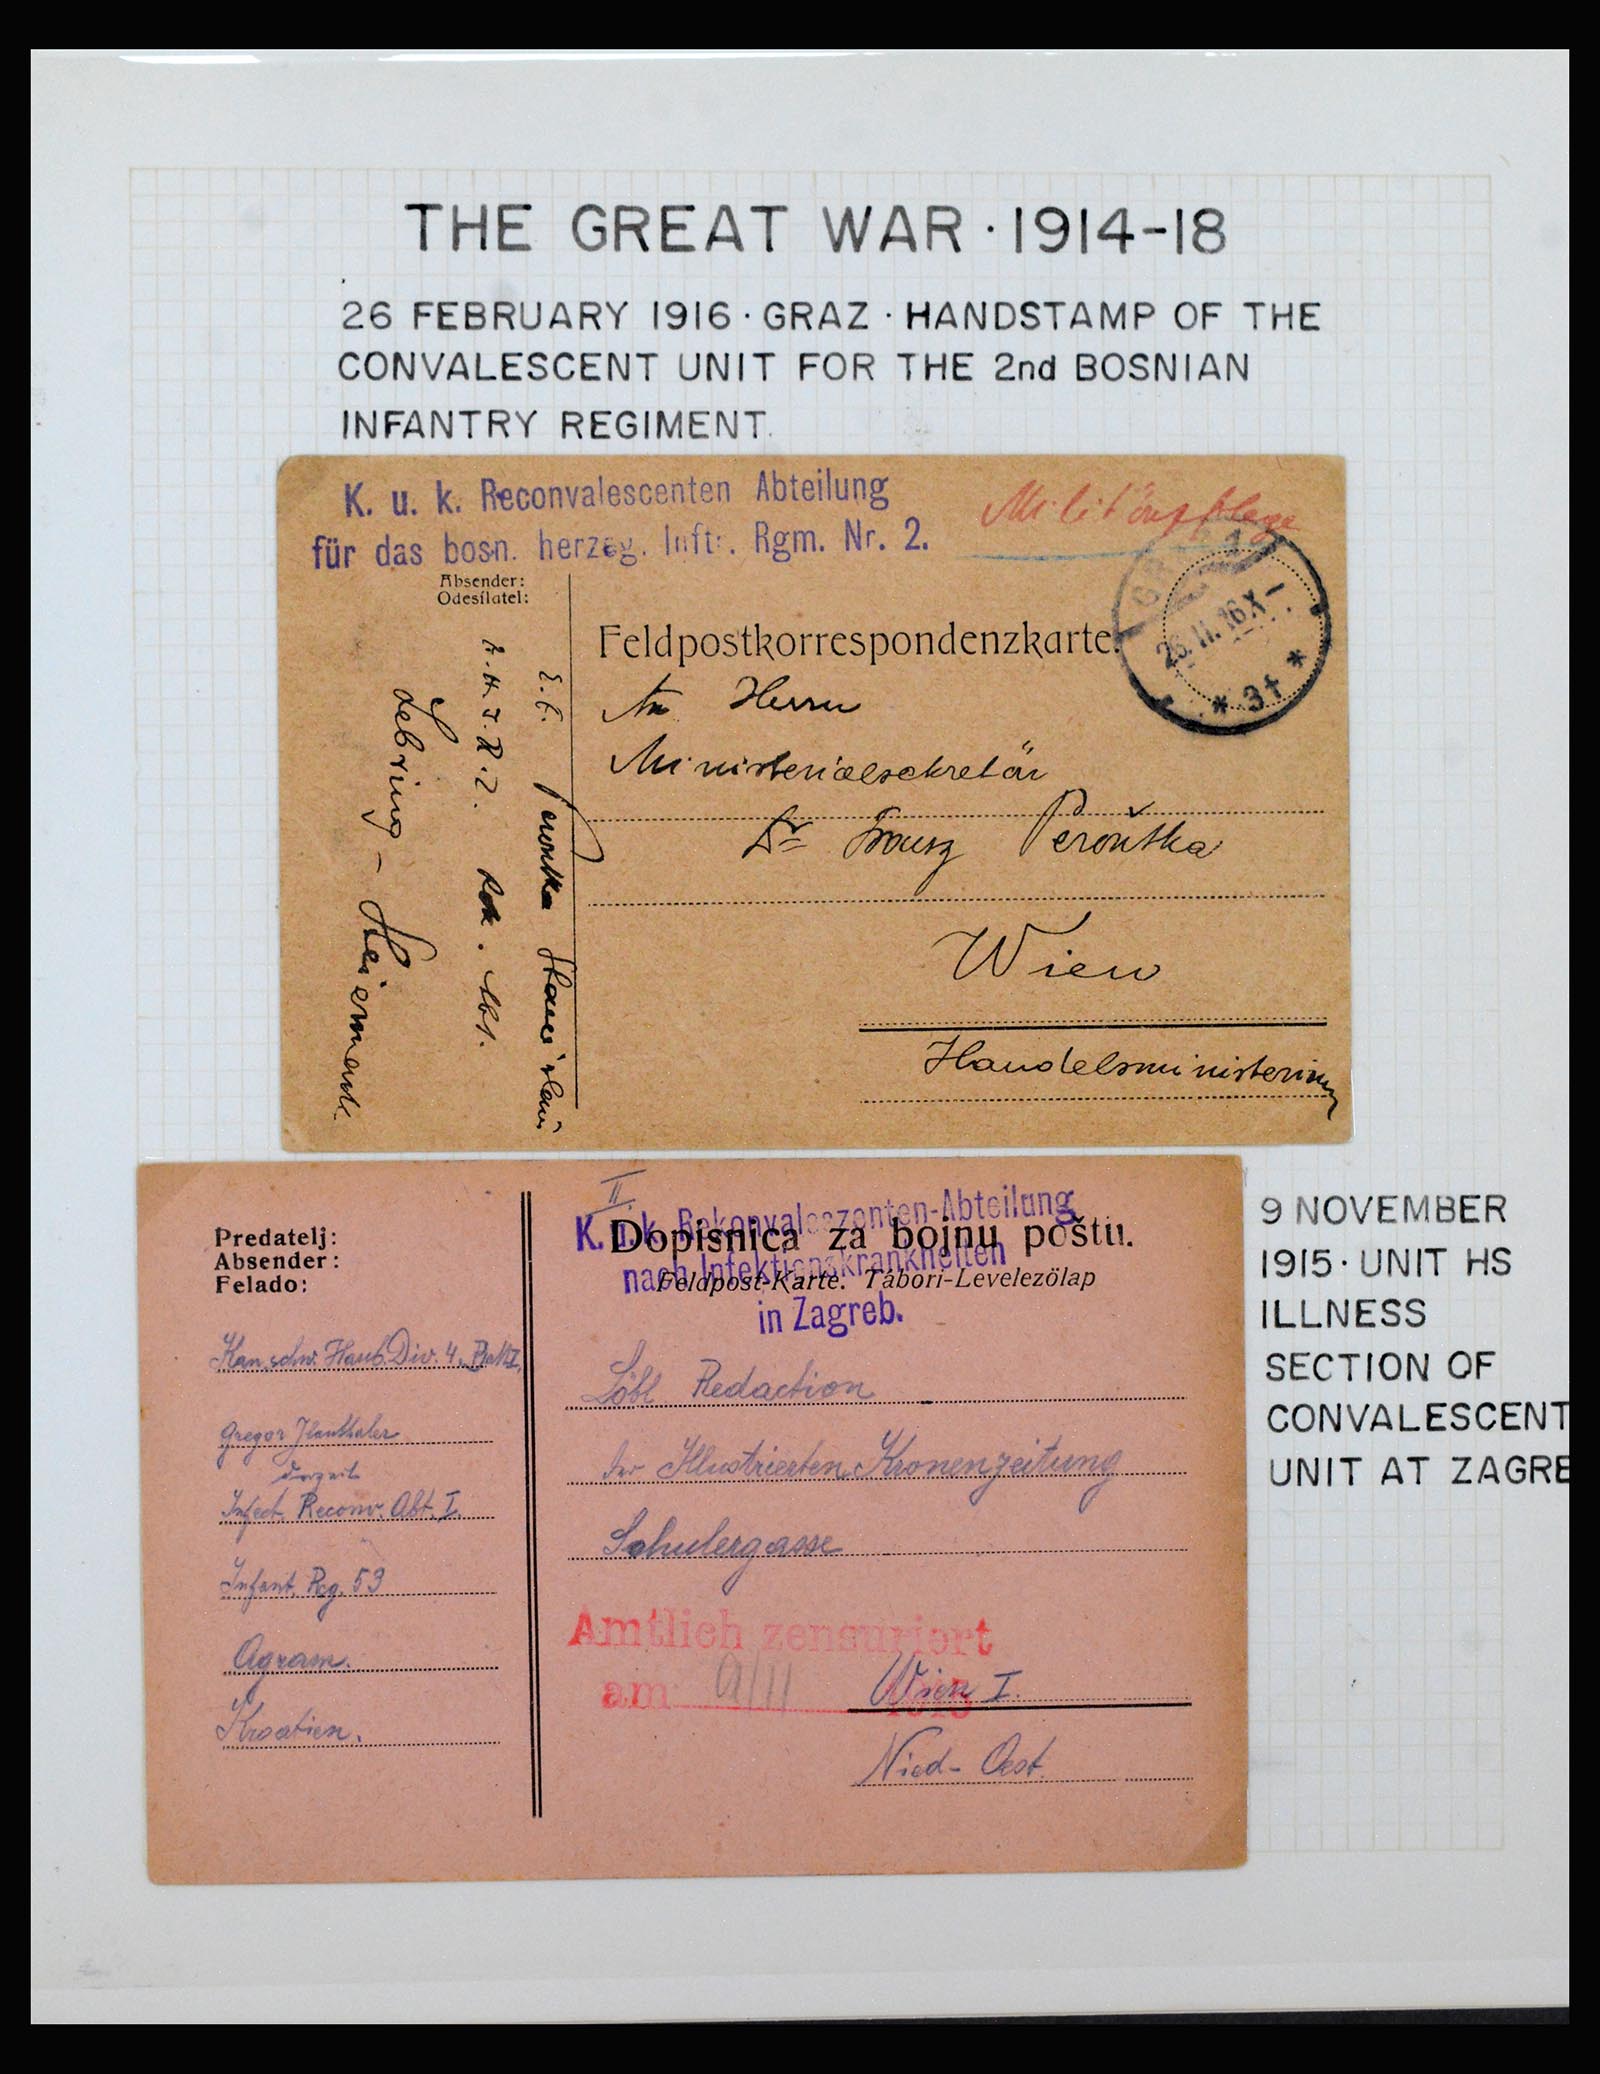 THE GREAT WAR · 1914-18
26 FEBRUARY 1916 · GRAZ · HANDSTAMP OF THE
CONVALESCENT UNIT FOR THE 2nd BOSNIAN
INFANTRY REGIMENT.
K. u. k. Reconvalescenten Abteilung
für das bosn. herzeg. Inftr. Rgm. Nr. 2.
Absender:
Odesílatel:
Feldpostkorrespondenzkarte.
26. II. 16 X
* 3f *
An Herrn
Ministerialsekretär
Dr Peroutka
Wien
Handelsministerium
Peroutka
Lebring –
II.
K. u. k. Rekonvaleszenten-Abteilung
nach Infektionskrankheiten
in Zagreb.
Dopisnica za bojnu poštu.
Feldpost-Karte. Tábori-Levelezőlap
Predatelj:
Absender:
Felado:
Kan. schw. Haub. Div. 4.
Gregor
derzeit
Infect. Reconv. Abt. I.
Infant. Reg. 53
Agram.
Kroatien.
Löbl Redaction
der Illustrierten Kronenzeitung
Schulergasse
Amtlich zensuriert
am 9/11 1915
Wien I.
Nied- Oest.
9 NOVEMBER
1915 · UNIT HS
ILLNESS
SECTION OF
CONVALESCENT
UNIT AT ZAGRE